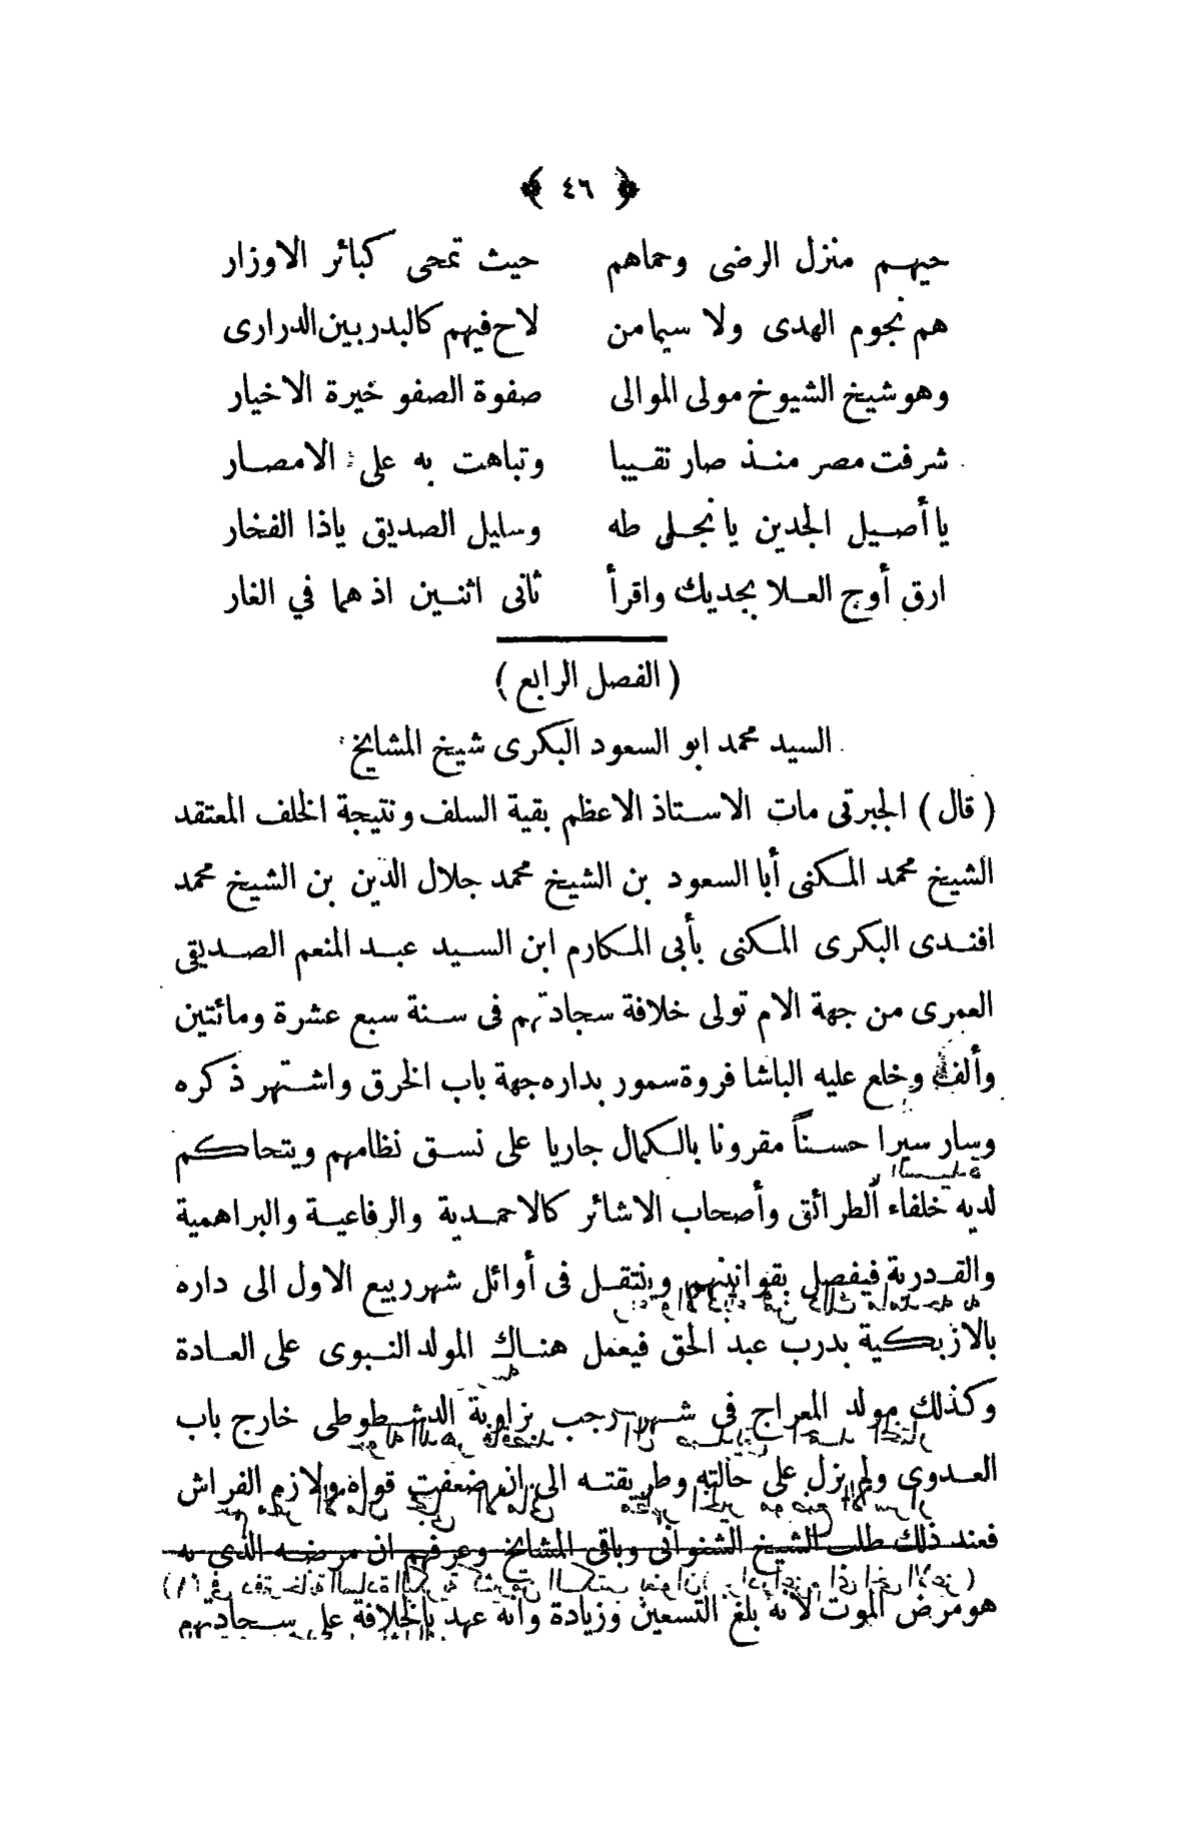 ﴿ ٤٦ ﴾
حيهم منزل الرضى وحماهم حيث تمحى كبائر الاوزار
هم نجوم الهدى ولا سيما من لاح فيهم كالبدر بين الدرارى
وهو شيخ الشيوخ مولى الموالى صفوة الصفو خيرة الاخيار
شرفت مصر منذ صار نقيبا وتباهت به على الامصار
يا أصيل الجدين يا نجلى طه وسليل الصديق ياذا الفخار
ارق أوج العلا بجديك واقرأ ثانى اثنين اذ هما في الغار
( الفصل الرابع )
السيد محمد ابو السعود البكرى شيخ المشايخ
( قال ) الجبرتى مات الاستاذ الاعظم بقية السلف ونتيجة الخلف المعتقد
الشيخ محمد المكنى أبا السعود بن الشيخ محمد جلال الدين بن الشيخ محمد
افندى البكرى المكنى بأبى المكارم ابن السيد عبد المنعم الصديقى
العمرى من جهة الام تولى خلافة سجادتهم فى سنة سبع عشرة ومائتين
وألف وخلع عليه الباشا فروة سمور بداره جهة باب الخرق واشتهر ذكره
وسار سيرا حسناً مقرونا بالكمال جاريا على نسق نظامهم ويتحاكم
لديه خلفاء الطرائق وأصحاب الاشائر كالاحمدية والرفاعية والبراهمية
والقدرية فيفصل بقوانينهم وينتقل فى أوائل شهر ربيع الاول الى داره
بالازبكية بدرب عبد الحق فيعمل هناك المولد النبوى على العادة
وكذلك مولد المعراج فى شهر رجب بزاوية الدشطوطى خارج باب
العدوى ولم يزل على حالته وطريقته الى ان ضعفت قواه ولازم الفراش
فعند ذلك طلب الشيخ الشنوانى وباقى المشايخ وعرفهم ان مرضه الذى به
هو مرض الموت لانه بلغ التسعين وزيادة وانه عهد بالخلافة على سجادتهم